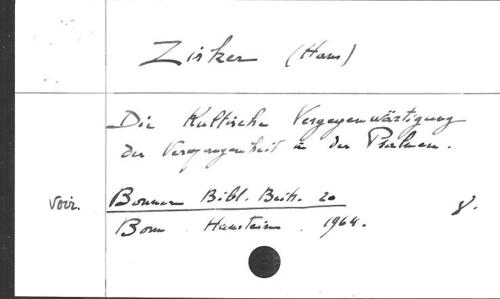 Zirker (Hans)
Die Kultische Vergegenwärtigung
der Vergangenheit in den Psalmen.
Voir. Bonner Bibl. Beitr. 20
Bonn Hanstein 1964. 8.